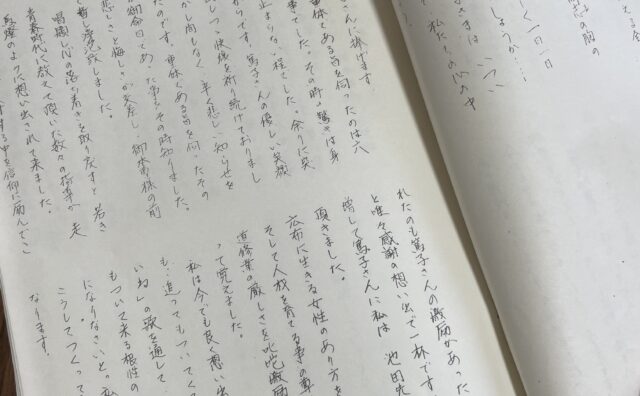 心の間の
く一日一
しょうか…
なさまは いつ
私たちの心の中
さんに捧げます。
重体である旨を伺ったのは六
でした。その時の驚きは身
止まらない程でした。余りに突
からです。篤子さんの優しい笑顔
しつつ快復を祈り続けておりまし
もなく、早く悲しい知らせを
です。重体である旨を伺ったその
御命日であった事をその時知りました。
悲しさと悔しさが交差し、御本尊様の前
暫く号泣致しました。
唱題し心の落ち着きを取り戻すと若き
青春時代に教えて頂いた数々の指導が走
馬燈のように想い出されて来ました。
する中を信仰に励んでこ
れたのも篤子さんの激励があった
と唯々感謝の想い出で一杯です
増して篤子さんに私は 池田先
頂きました。
広布に生きる女性のあり方を
そして人材を育てる事の尊
道修業の厳しさを叱咤激励
って覚えました。
私は今でも良い想い出
も…追ってもついてくる
いね」の歌を通して
もついて来る根性の
になりなさいと。私
こうしてつくって
なります。